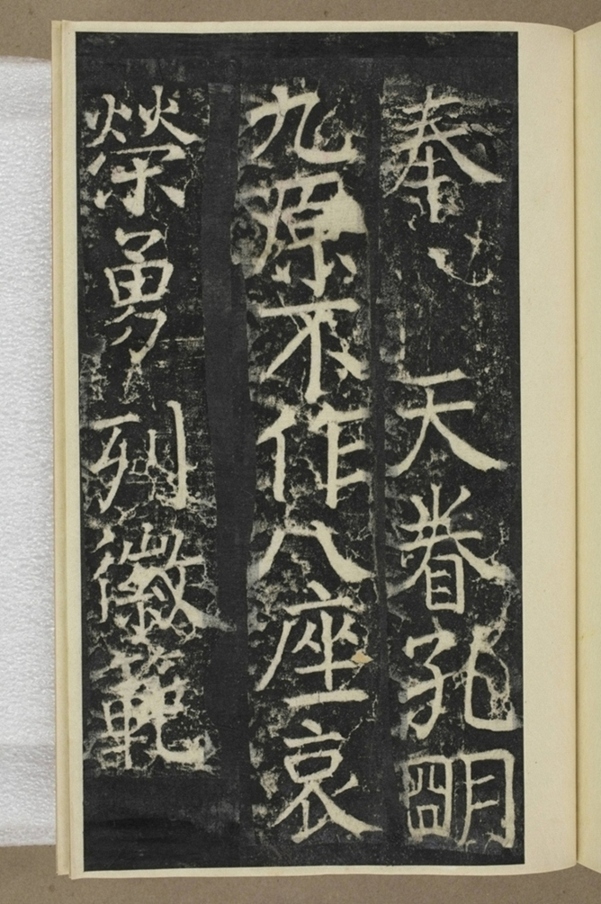 奉天眷孔朙
九原不作八座哀
榮勇列徽範